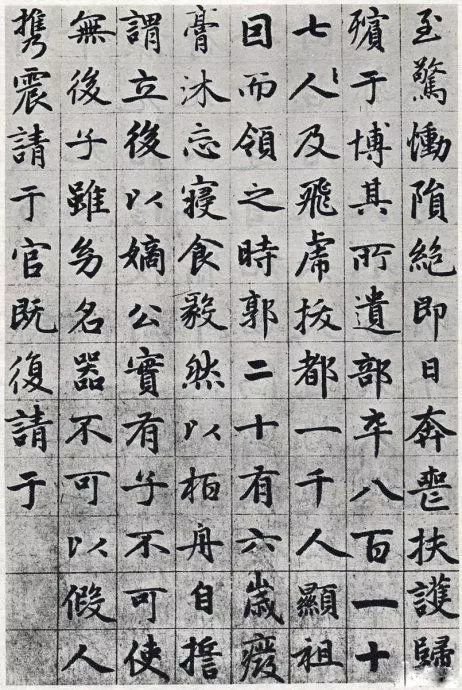 至驚慟隕絶即日奔喪扶護歸
殯于博其所遺部卒八百一十
七人及飛虎拔都一千人顯祖
囙而領之時郭二十有六歲癈
膏沐忘寢食毅然以栢舟自誓
謂立後以嫡公實有子不可使
無後子雖幼名器不可以假人
携震請于官既復請于